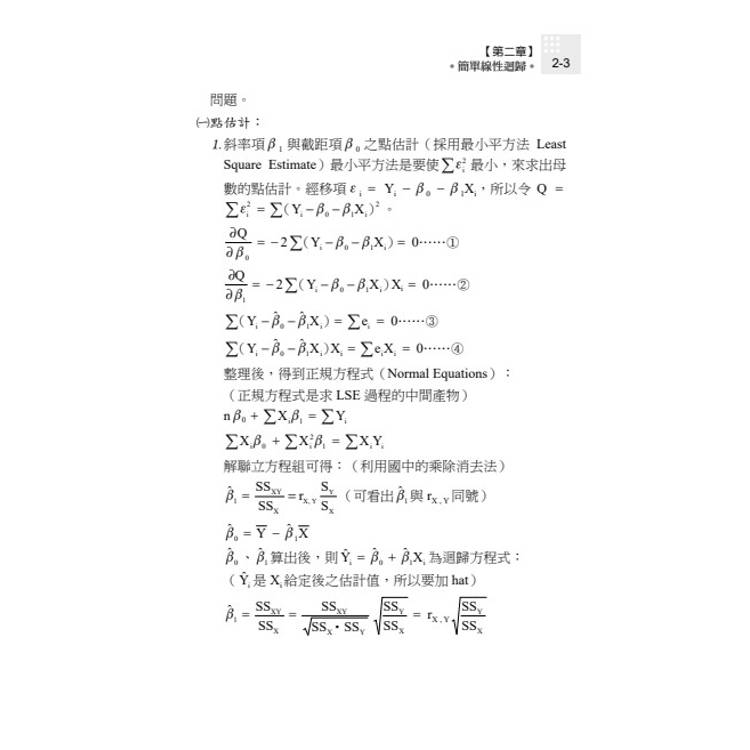 【第二章】
◦簡單線性迴歸◦ 2-3
問題。
㈠點估計：
1.斜率項β₁與截距項β₀之點估計（採用最小平方法 Least
Square Estimate）最小平方法是要使∑εᵢ²最小，來求出母
數的點估計。經移項 εᵢ = Yᵢ − β₀ − β₁Xᵢ，所以令 Q =
∑εᵢ² = ∑(Yᵢ−β₀−β₁Xᵢ)²。
∂Q/∂β₀ = −2∑(Yᵢ−β₀−β₁Xᵢ) = 0⋯⋯①
∂Q/∂β₁ = −2∑(Yᵢ−β₀−β₁Xᵢ)Xᵢ = 0⋯⋯②
∑(Yᵢ−β̂₀−β̂₁Xᵢ) = ∑eᵢ = 0⋯⋯③
∑(Yᵢ−β̂₀−β̂₁Xᵢ)Xᵢ = ∑eᵢXᵢ = 0⋯⋯④
整理後，得到正規方程式（Normal Equations）：
（正規方程式是求 LSE 過程的中間產物）
nβ₀ + ∑Xᵢβ₁ = ∑Yᵢ
∑Xᵢβ₀ + ∑Xᵢ²β₁ = ∑XᵢYᵢ
解聯立方程組可得：（利用國中的乘除消去法）
β̂₁ = SS_XY/SS_X = r_X,Y S_Y/S_X（可看出β̂₁與 r_X,Y 同號）
β̂₀ = Y̅ − β̂₁X̅
β̂₀、β̂₁算出後，則Ŷᵢ = β̂₀ + β̂₁Xᵢ 為迴歸方程式：
（Ŷᵢ是 Xᵢ給定後之估計值，所以要加 hat）
β̂₁ = SS_XY/SS_X = SS_XY/√(SS_X·SS_Y) √(SS_Y/SS_X) = r_X,Y √(SS_Y/SS_X)